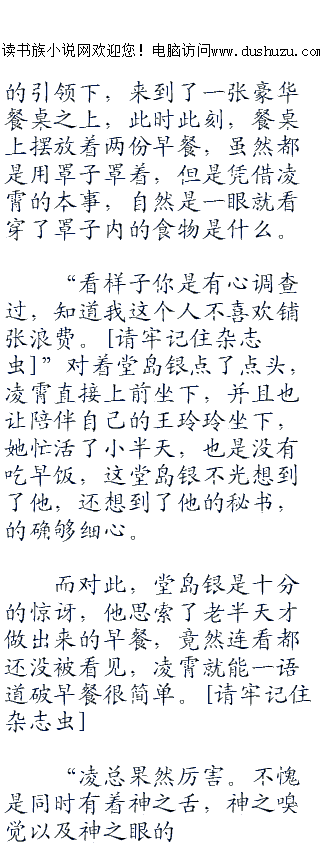 读书族小说网欢迎您！电脑访问www.dushuzu.com
的引领下，来到了一张豪华
餐桌之上，此时此刻，餐桌
上摆放着两份早餐，虽然都
是用罩子罩着，但是凭借凌
霄的本事，自然是一眼就看
穿了罩子内的食物是什么。
“看样子你是有心调查
过，知道我这个人不喜欢铺
张浪费。[请牢记住杂志
虫]”对着堂岛银点了点头，
凌霄直接上前坐下，并且也
让陪伴自己的王玲玲坐下，
她忙活了小半天，也是没有
吃早饭，这堂岛银不光想到
了他，还想到了他的秘书，
的确够细心。
而对此，堂岛银是十分
的惊讶，他思索了老半天才
做出来的早餐，竟然连看都
还没被看见，凌霄就能一语
道破早餐很简单。[请牢记住
杂志虫]
“凌总果然厉害。不愧
是同时有着神之舌，神之嗅
觉以及神之眼的